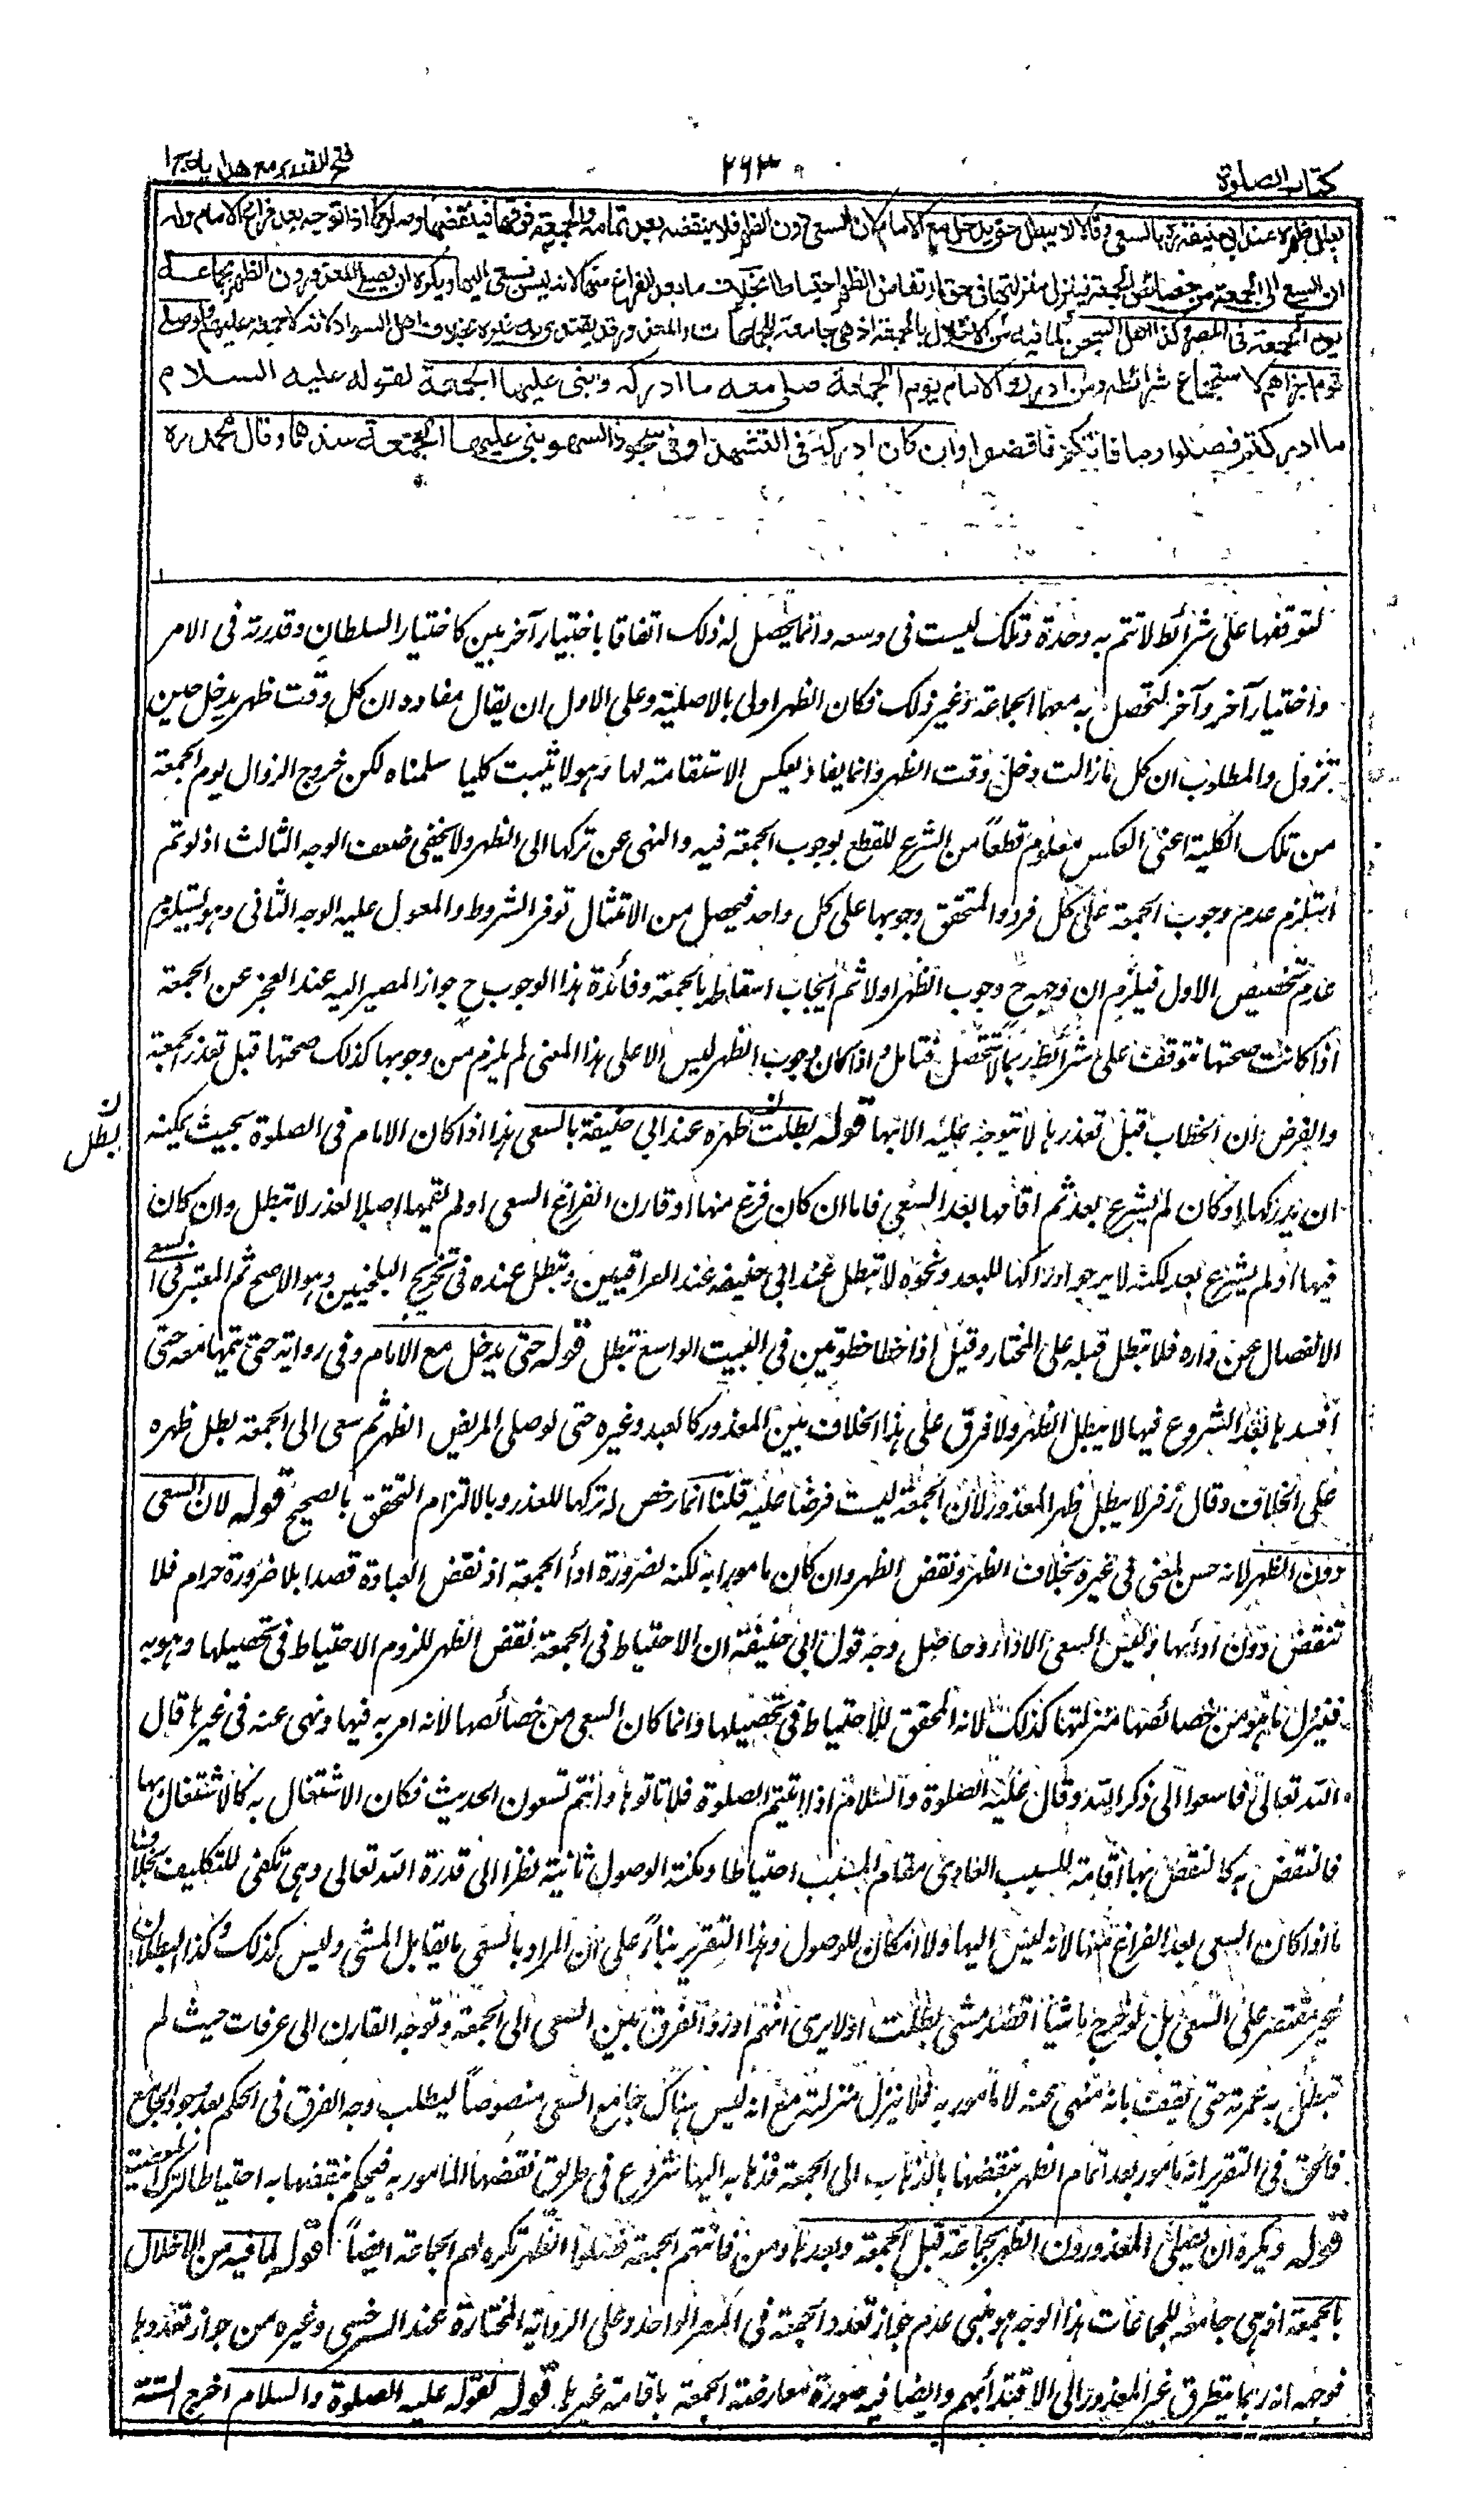 كتاب الصلوة
٢٦٣
فتح القدير مع هدايه ج ١
بطل ظهره عند ابي حنيفة ره بالسعى وقالا لا يبطل حتى يدخل مع الامام لان السعى دون الظهر فلا ينقضه بعد تمامه والجمعة فوقها فينقضها وصار كما اذا توجه بعد فراغ الامام وله
ان السعى الى الجمعة من خصائص الجمعة فينزل منزلتها فى حق ارتفاض الظهر احتياطا بخلاف ما بعد الفراغ منها لانه ليس بسعى اليها ويكره ان يصلى المعذورون الظهر بجماعة
يوم الجمعة فى المصر وكذا اهل السجن لما فيه من الاخلال بالجمعة اذ هى جامعة للجماعات والمعذور قد يقتدى به غيره بخلاف اهل السواد لانه لا جمعة عليهم ولو صلى
قوم اجزاهم لاستجماع شرائطه ومن ادرك الامام يوم الجمعة صلى معه ما ادركه وبنى عليها الجمعة لقوله عليه السلام
ما ادركتم فصلوا وما فاتكم فاقضوا وان كان ادركه فى التشهد او فى سجود السهو بنى عليها الجمعة عندهما وقال محمد ره
لتوقفها على شرائط لا تتم به وحدة وتلك ليست فى وسعه وانما يحصل له ذلك اتفاقا باختيار آخرين كاختيار السلطان وقدرته فى الامر
واختيار آخر وآخر لتحصل به معهما الجماعة وغير ذلك فكان الظهر اولى بالاصلية وعلى الاول ان يقال مفاده ان كل وقت ظهر يدخل حين
تزول والمطلوب ان كل ما زالت دخل وقت الظهر وانما يفاد بعكس الاستقامة لها وهو لا يثبت كليا سلمناه لكن خروج الزوال يوم الجمعة
من تلك الكلية اعنى العكس معلوم قطعاً من الشرع للقطع بوجوب الجمعة فيه والنهى عن تركها الى الظهر ولا يخفى ضعف الوجه الثالث اذ لو تم
استلزم عدم وجوب الجمعة على كل فرد والمتحقق وجوبها على كل واحد فيحصل من الامتثال توفر الشروط والمعول عليه الوجه الثانى وهو يستلزم
عدم تخصيص الاول فيلزم ان وجهه ح وجوب الظهر اولا ثم ايجاب اسقاطه بالجمعة وفائدة هذا الوجوب ح جواز المصير اليه عند العجز عن الجمعة
اذا كانت صحتها تتوقف على شرائط ربما لا تتحصل فتامل واذا كان وجوب الظهر ليس الا على هذا المعنى لم يلزم من وجوبها كذلك صحتها قبل تعذر الجمعة
والفرض ان الخطاب قبل تعذرها لا يتوجه عليه الا بها قوله بطلت ظهره عند ابى حنيفة بالسعى هذا اذا كان الامام فى الصلوة بحيث يمكنه
ن بطل
ان يدركها او كان لم يشرع بعد ثم اقامها بعد السعى فاما ان كان فرغ منها او قارن الفراغ السعى او لم يقمها اصلا لعذر لا تبطل وان كان
فيها او لم يشرع بعد لكنه لا يرجو ادراكها للبعد ونحوه لا تبطل عند ابى حنيفه عند العراقيين وتبطل عنده فى تخريج البلخيين وهو الاصح ثم المعتبر فى السعى
الانفصال عن داره فلا تبطل قبله على المختار وقيل اذا خطا خطوتين فى البيت الواسع تبطل قوله حتى يدخل مع الامام وفى رواية حتى يتمها معه حتى
افسدها بعد الشروع فيها لا يبطل الظهر ولا فرق على هذا الخلاف بين المعذور كالعبد وغيره حتى لو صلى المريض الظهر ثم سعى الى الجمعة بطل ظهره
على الخلاف وقال زفر لا يبطل ظهر المعذور لان الجمعة ليست فرضا عليه قلنا انما رخص له تركها للعذر وبالالتزام التحق بالصحيح قوله لان السعى
دون الظهر لانه حسن لمعنى فى غيره بخلاف الظهر ونقض الظهر وان كان مامورا به لكنه لضرورة اداء الجمعة اذ نقض العبادة قصدا بلا ضرورة حرام فلا
تنقض دون ادائها وليس السعى الاداء وحاصل وجه قول ابى حنيفة ان الاحتياط فى الجمعة نقض الظهر للزوم الاحتياط فى تحصيلها وهو به
فينزل ما هو من خصائصها منزلتها كذلك لانه المحقق للاحتياط فى تحصيلها وانما كان السعى من خصائصها لانه امر به فيها ونهى عنه فى غيرها قال
الله تعالى فاسعوا الى ذكر الله وقال عليه الصلوة والسلام اذا اتيتم الصلوة فلا تاتوها وانتم تسعون الحديث فكان الاشتغال به كالاشتغال بها
فالنقض به كالنقض بها اقامة للسبب العادى مقام المسبب احتياطا ومكنة الوصول ثابتة نظرا الى قدرة الله تعالى وهى تكفى للتكليف بخلاف
ما اذا كان السعى بعد الفراغ منها لانه ليس اليها ولا امكان للوصول وهذا التقرير بناءً على ان المراد بالسعى ما يقابل المشى وليس كذلك وكذا البطلان
غير مقتصر على السعى بل لو خرج ماشيا اقصد مشى بطلت اولا يرى انهم اوردوا الفرق بين السعى الى الجمعة وتوجه القارن الى عرفات حيث لم
تبطل به عمرته حتى يقف بانه منهى عنه لا مامور به فلا ينزل منزلته مع انه ليس هناك جامع السعى منصوصاً ليطلب وجه الفرق فى الحكم بعد وجود الجامع
فالحق فى التقرير انه مامور بعد اتمام الظهر بنقضها بالذهاب الى الجمعة فذهابه اليها شروع فى طريق نقضها المامور به فيحكم بنقضها به احتياطا لترك المعصية
قوله ويكره ان يصلى المعذورون الظهر بجماعة قبل الجمعة وبعدها ومن فاتتهم الجمعة فصلوا الظهر تكره لهم الجماعة ايضاً قوله لما فيه من الاخلال
بالجمعة اذ هى جامعة للجماعات هذا الوجه هو مبنى عدم جواز تعدد الجمعة فى المصر الواحد وعلى الرواية المختارة عند السرخسى وغيره من جواز تعددها
فوجهه انه ربما يتطرق غير المعذور الى الاقتداء بهم وايضا فيه صورة معارضة الجمعة باقامة غيرها قوله لقوله عليه الصلوة والسلام اخرج الستة